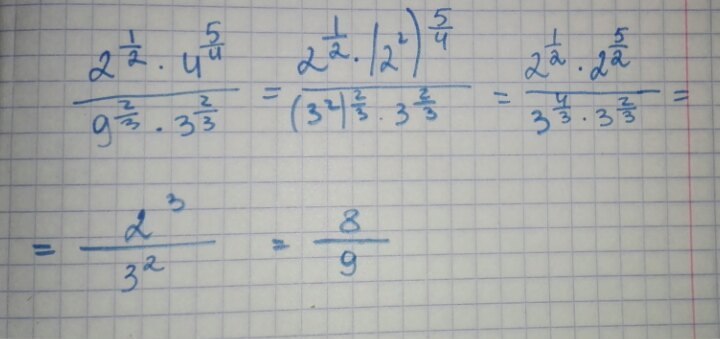 \frac{2^{\frac{1}{2}} \cdot 4^{\frac{5}{4}}}{9^{\frac{2}{3}} \cdot 3^{\frac{2}{3}}} = \frac{2^{\frac{1}{2}} \cdot (2^2)^{\frac{5}{4}}}{(3^2)^{\frac{2}{3}} \cdot 3^{\frac{2}{3}}} = \frac{2^{\frac{1}{2}} \cdot 2^{\frac{5}{2}}}{3^{\frac{4}{3}} \cdot 3^{\frac{2}{3}}} =
= \frac{2^3}{3^2} = \frac{8}{9}